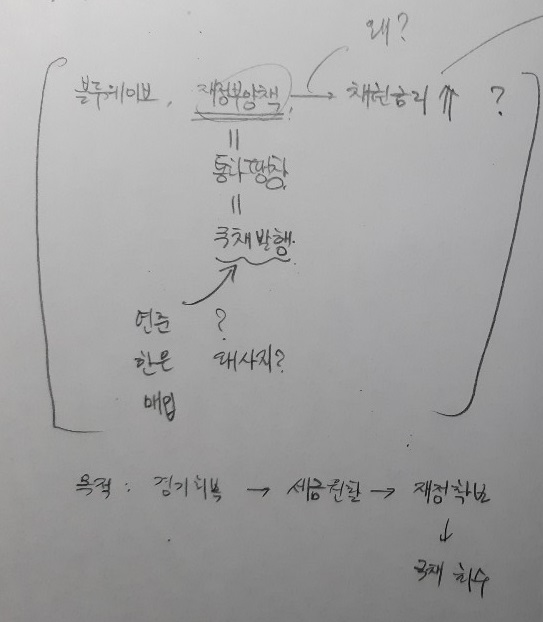 왜?
블루웨이브, 재정부양책 → 채권금리 ⇑ ?
=
통화팽창
=
국채발행.
연준 ?
한은 왜사지?
매입
목적 : 경기회복 → 세금원활 → 재정확보
↓
국채 회수